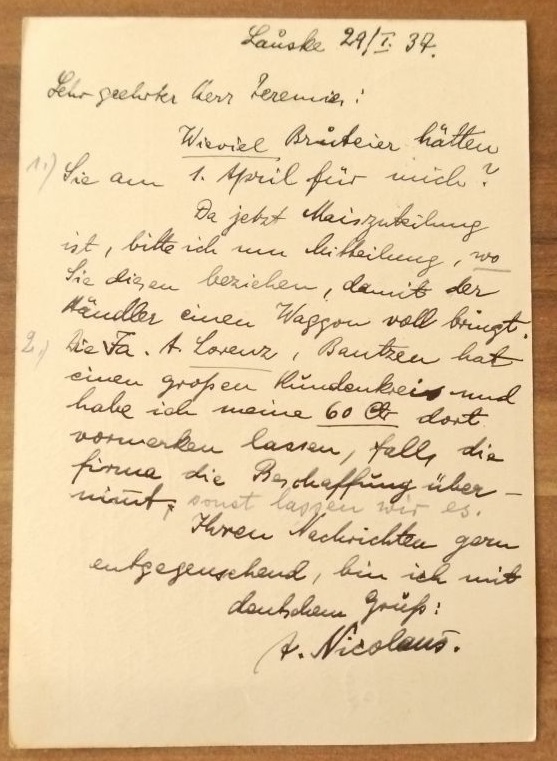 Lauske 29/I. 37.
Sehr geehrter Herr Jeremies!
Wieviel Bruteier hätten
1.) Sie am 1. April für mich?
Da jetzt Maiszuteilung
ist, bitte ich um Mitteilung, wo
Sie diesen beziehen, damit der
Händler einen Waggon voll bringt.
2.) Die Fa. A. Lorenz, Bautzen hat
einen großen Kundenkreis und
habe ich meine 60 Ctr dort
vormerken lassen, falls die
Firma die Beschaffung über-
nimt, sonst lassen wir es.
Ihren Nachrichten gern
entgegensehend, bin ich mit
deutschem Gruß:
A. Nicolaus.